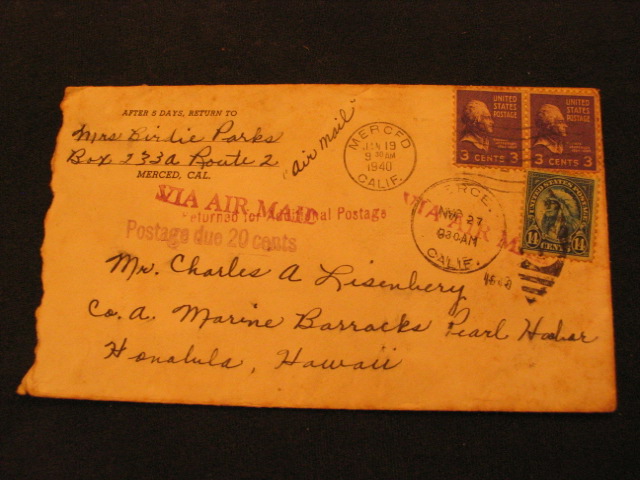 AFTER 5 DAYS, RETURN TO
Mrs Birdie Parks
Box 233a Route 2
MERCED, CAL.
"air mail"
MERCED
JAN 19
9 30 AM
1940
CALIF.
UNITED STATES POSTAGE
3 CENTS 3
UNITED STATES POSTAGE
3 CENTS 3
VIA AIR MAIL
Returned for Additional Postage
Postage due 20 cents
VIA AIR M
27
930AM
CALIF.
UNITED STATES POSTAGE
14 CENTS 14
Mr. Charles A Lisenbery
Co. a. Marine Barracks Pearl Habor
Honalula, Hawaii